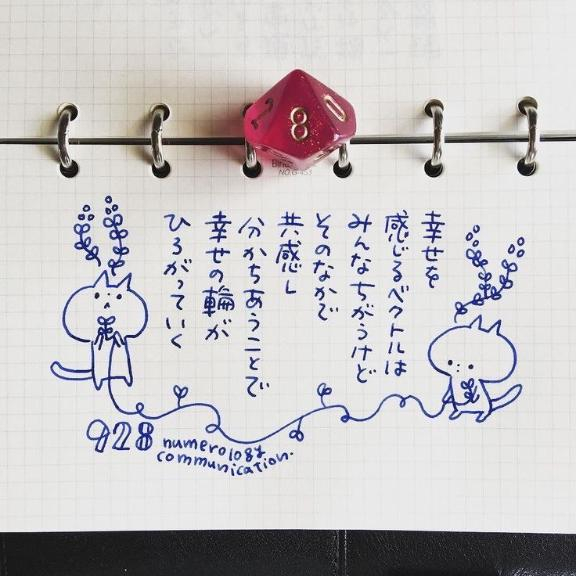 8
0
NO.G-453
幸せを
感じるベクトルは
みんなちがうけど
そのなかで
共感し
分かちあうことで
幸せの輪が
ひろがっていく
928 numerology
communication.